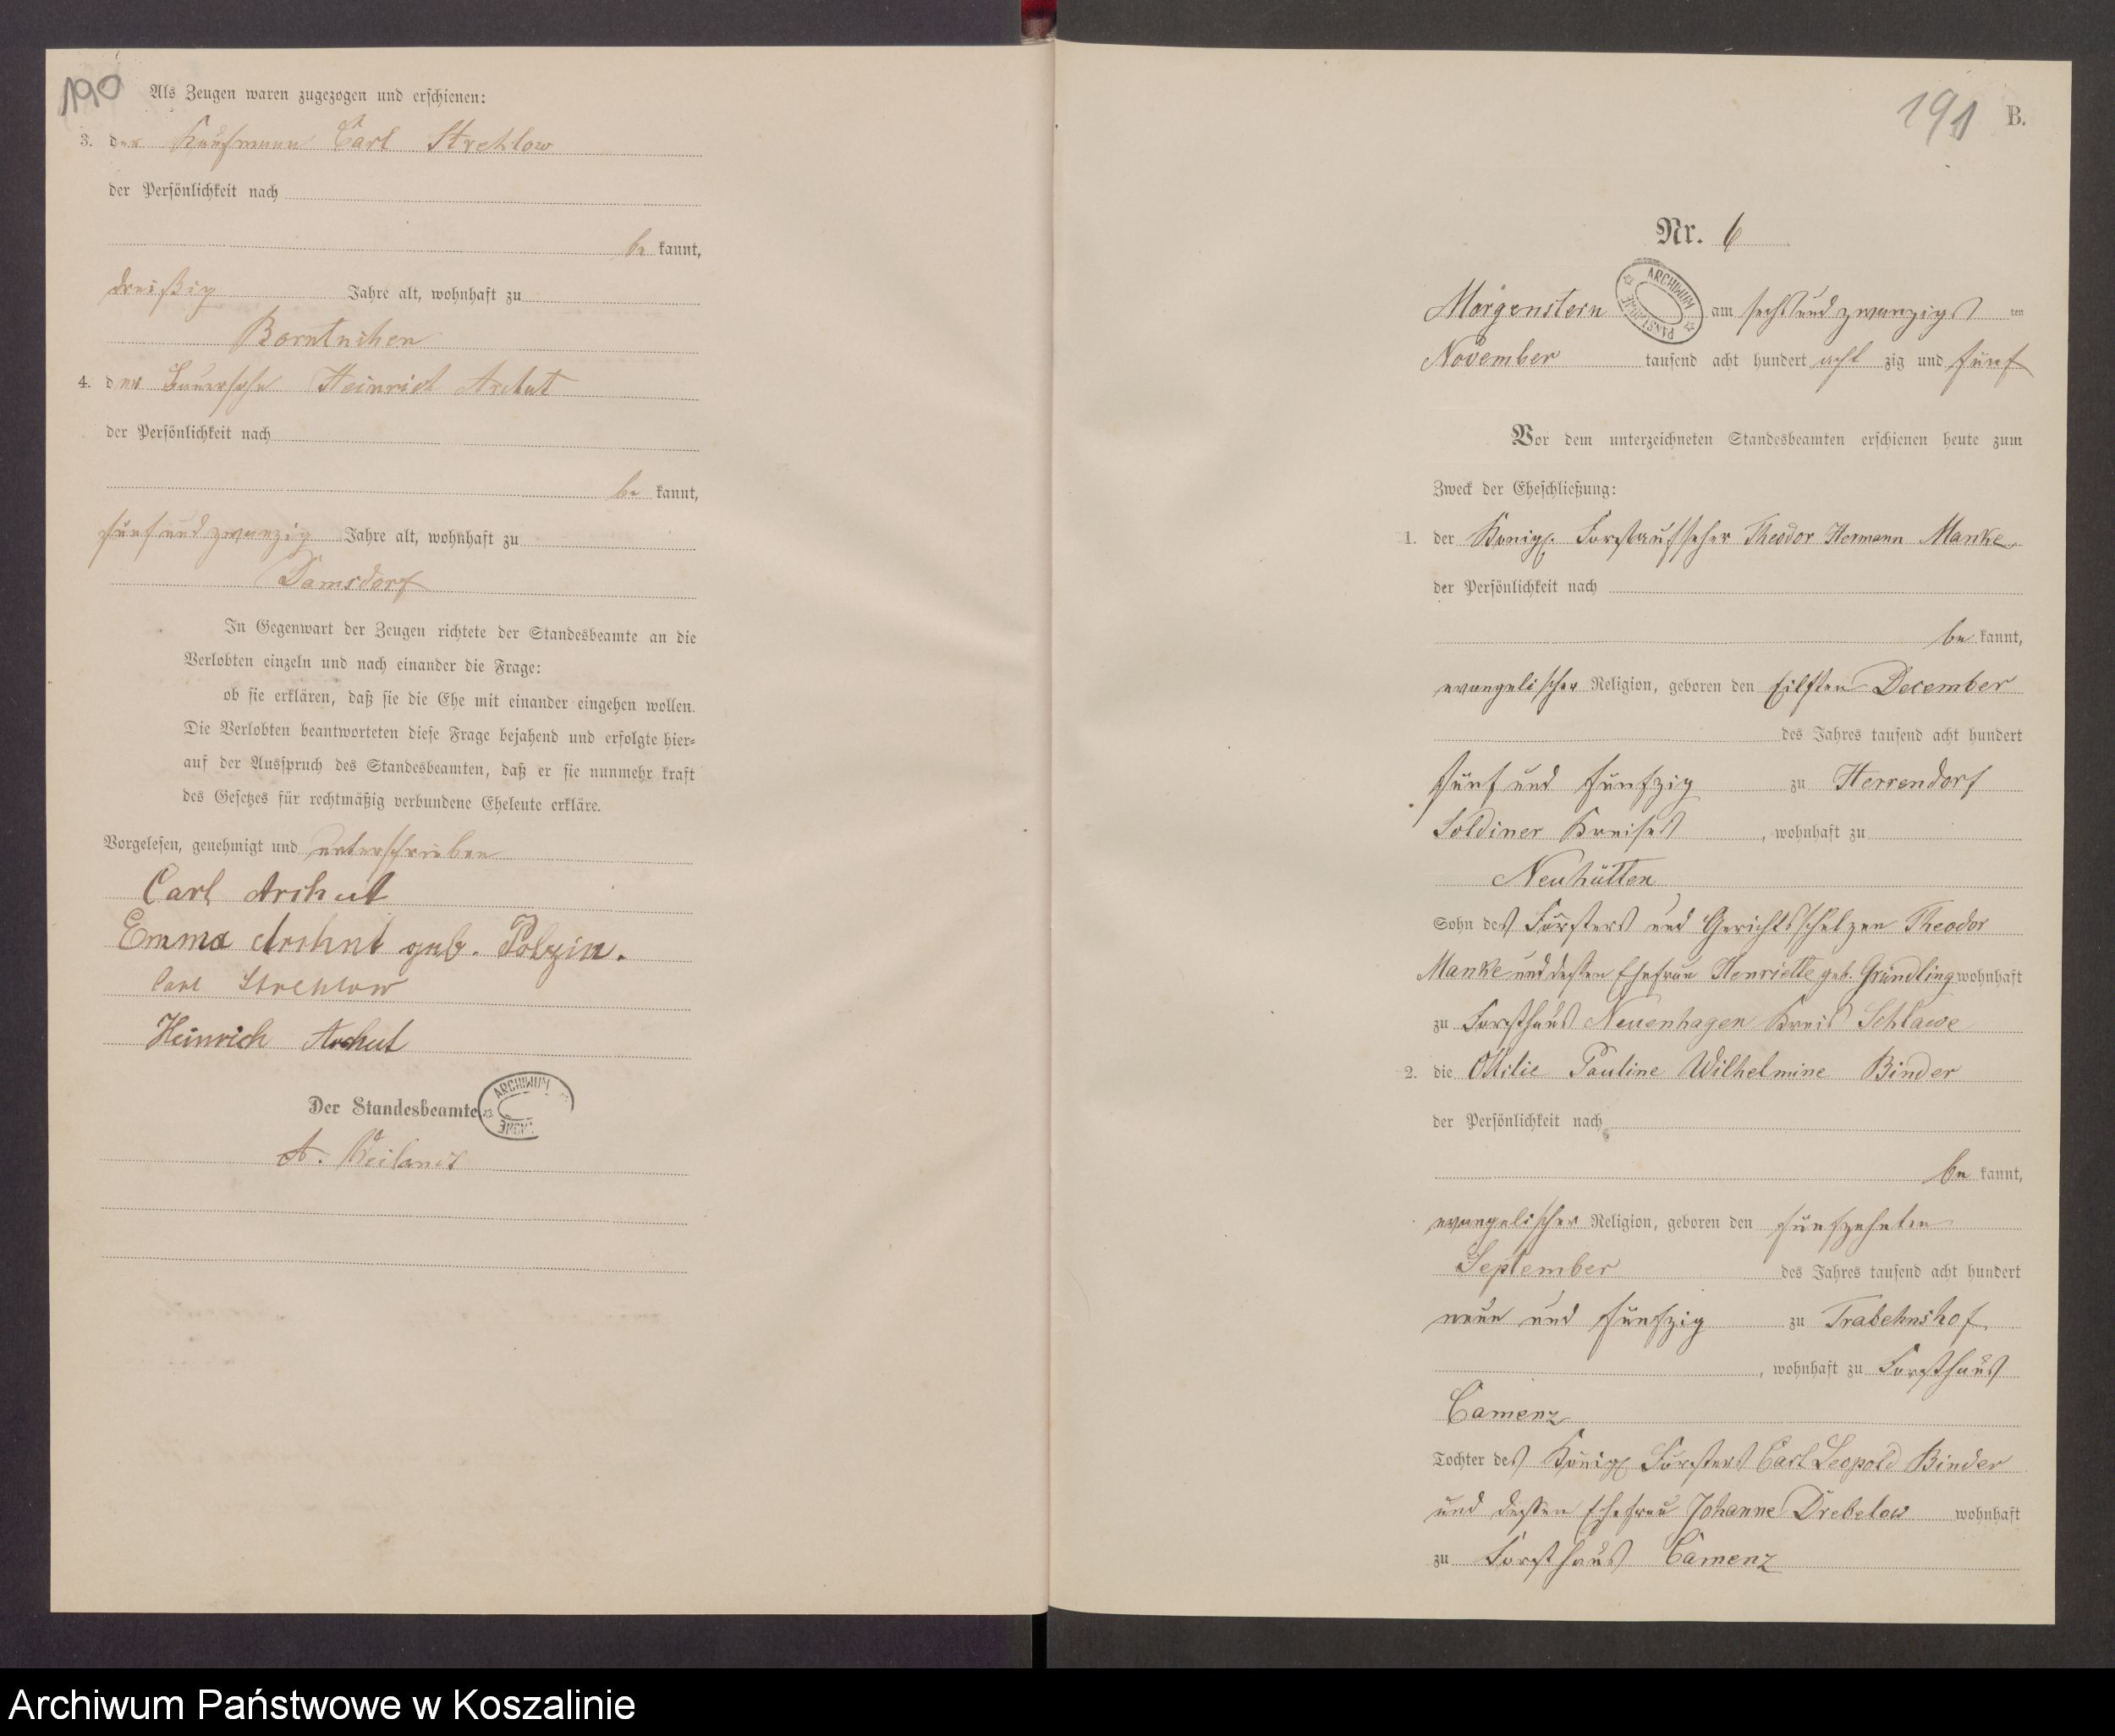 190
Als Zeugen waren zugezogen und erschienen:
3. der Kaufmann Carl Strehlow
der Persönlichkeit nach
be kannt,
dreißig Jahre alt, wohnhaft zu
Borntuchen
4. der Bauersohn Heinrich Archut
der Persönlichkeit nach
be kannt,
fünfundzwanzig Jahre alt, wohnhaft zu
Damsdorf
In Gegenwart der Zeugen richtete der Standesbeamte an die
Verlobten einzeln und nach einander die Frage:
ob sie erklären, daß sie die Ehe mit einander eingehen wollen.
Die Verlobten beantworteten diese Frage bejahend und erfolgte hier-
auf der Ausspruch des Standesbeamten, daß er sie nunmehr kraft
des Gesetzes für rechtmäßig verbundene Eheleute erkläre.
Vorgelesen, genehmigt und unterschrieben
Carl Archut
Emma Archut geb. Polzin.
Carl Strehlow
Heinrich Archut
ARCHIWUM
Der Standesbeamte
A. Weiland
191 B.
Nr. 6
ARCHIWUM PAŃSTWOWE
Morgenstern am sechsundzwanzigsten
November tausend acht hundert acht zig und fünf
Vor dem unterzeichneten Standesbeamten erschienen heute zum
Zweck der Eheschließung:
1. der Königl. Forstaufseher Theodor Hermann Manke
der Persönlichkeit nach
be kannt,
evangelischer Religion, geboren den eilften December
des Jahres tausend acht hundert
fünf und fünfzig zu Herrendorf
Soldiner Kreises, wohnhaft zu
Neuhütten
Sohn des Försters und Gerichtsschulzen Theodor
Manke und dessen Ehefrau Henriette geb. Gründling wohnhaft
zu Forsthaus Neuenhagen Kreis Schlawe
2. die Ottilie Pauline Wilhelmine Binder
der Persönlichkeit nach
be kannt,
evangelischer Religion, geboren den fünfzehnten
September des Jahres tausend acht hundert
neun und fünfzig zu Trabehnshof
, wohnhaft zu Forsthaus
Camenz
Tochter des Königl Försters Carl Leopold Binder
und dessen Ehefrau Johanne Drebelow wohnhaft
zu Forsthaus Camenz
Archiwum Państwowe w Koszalinie